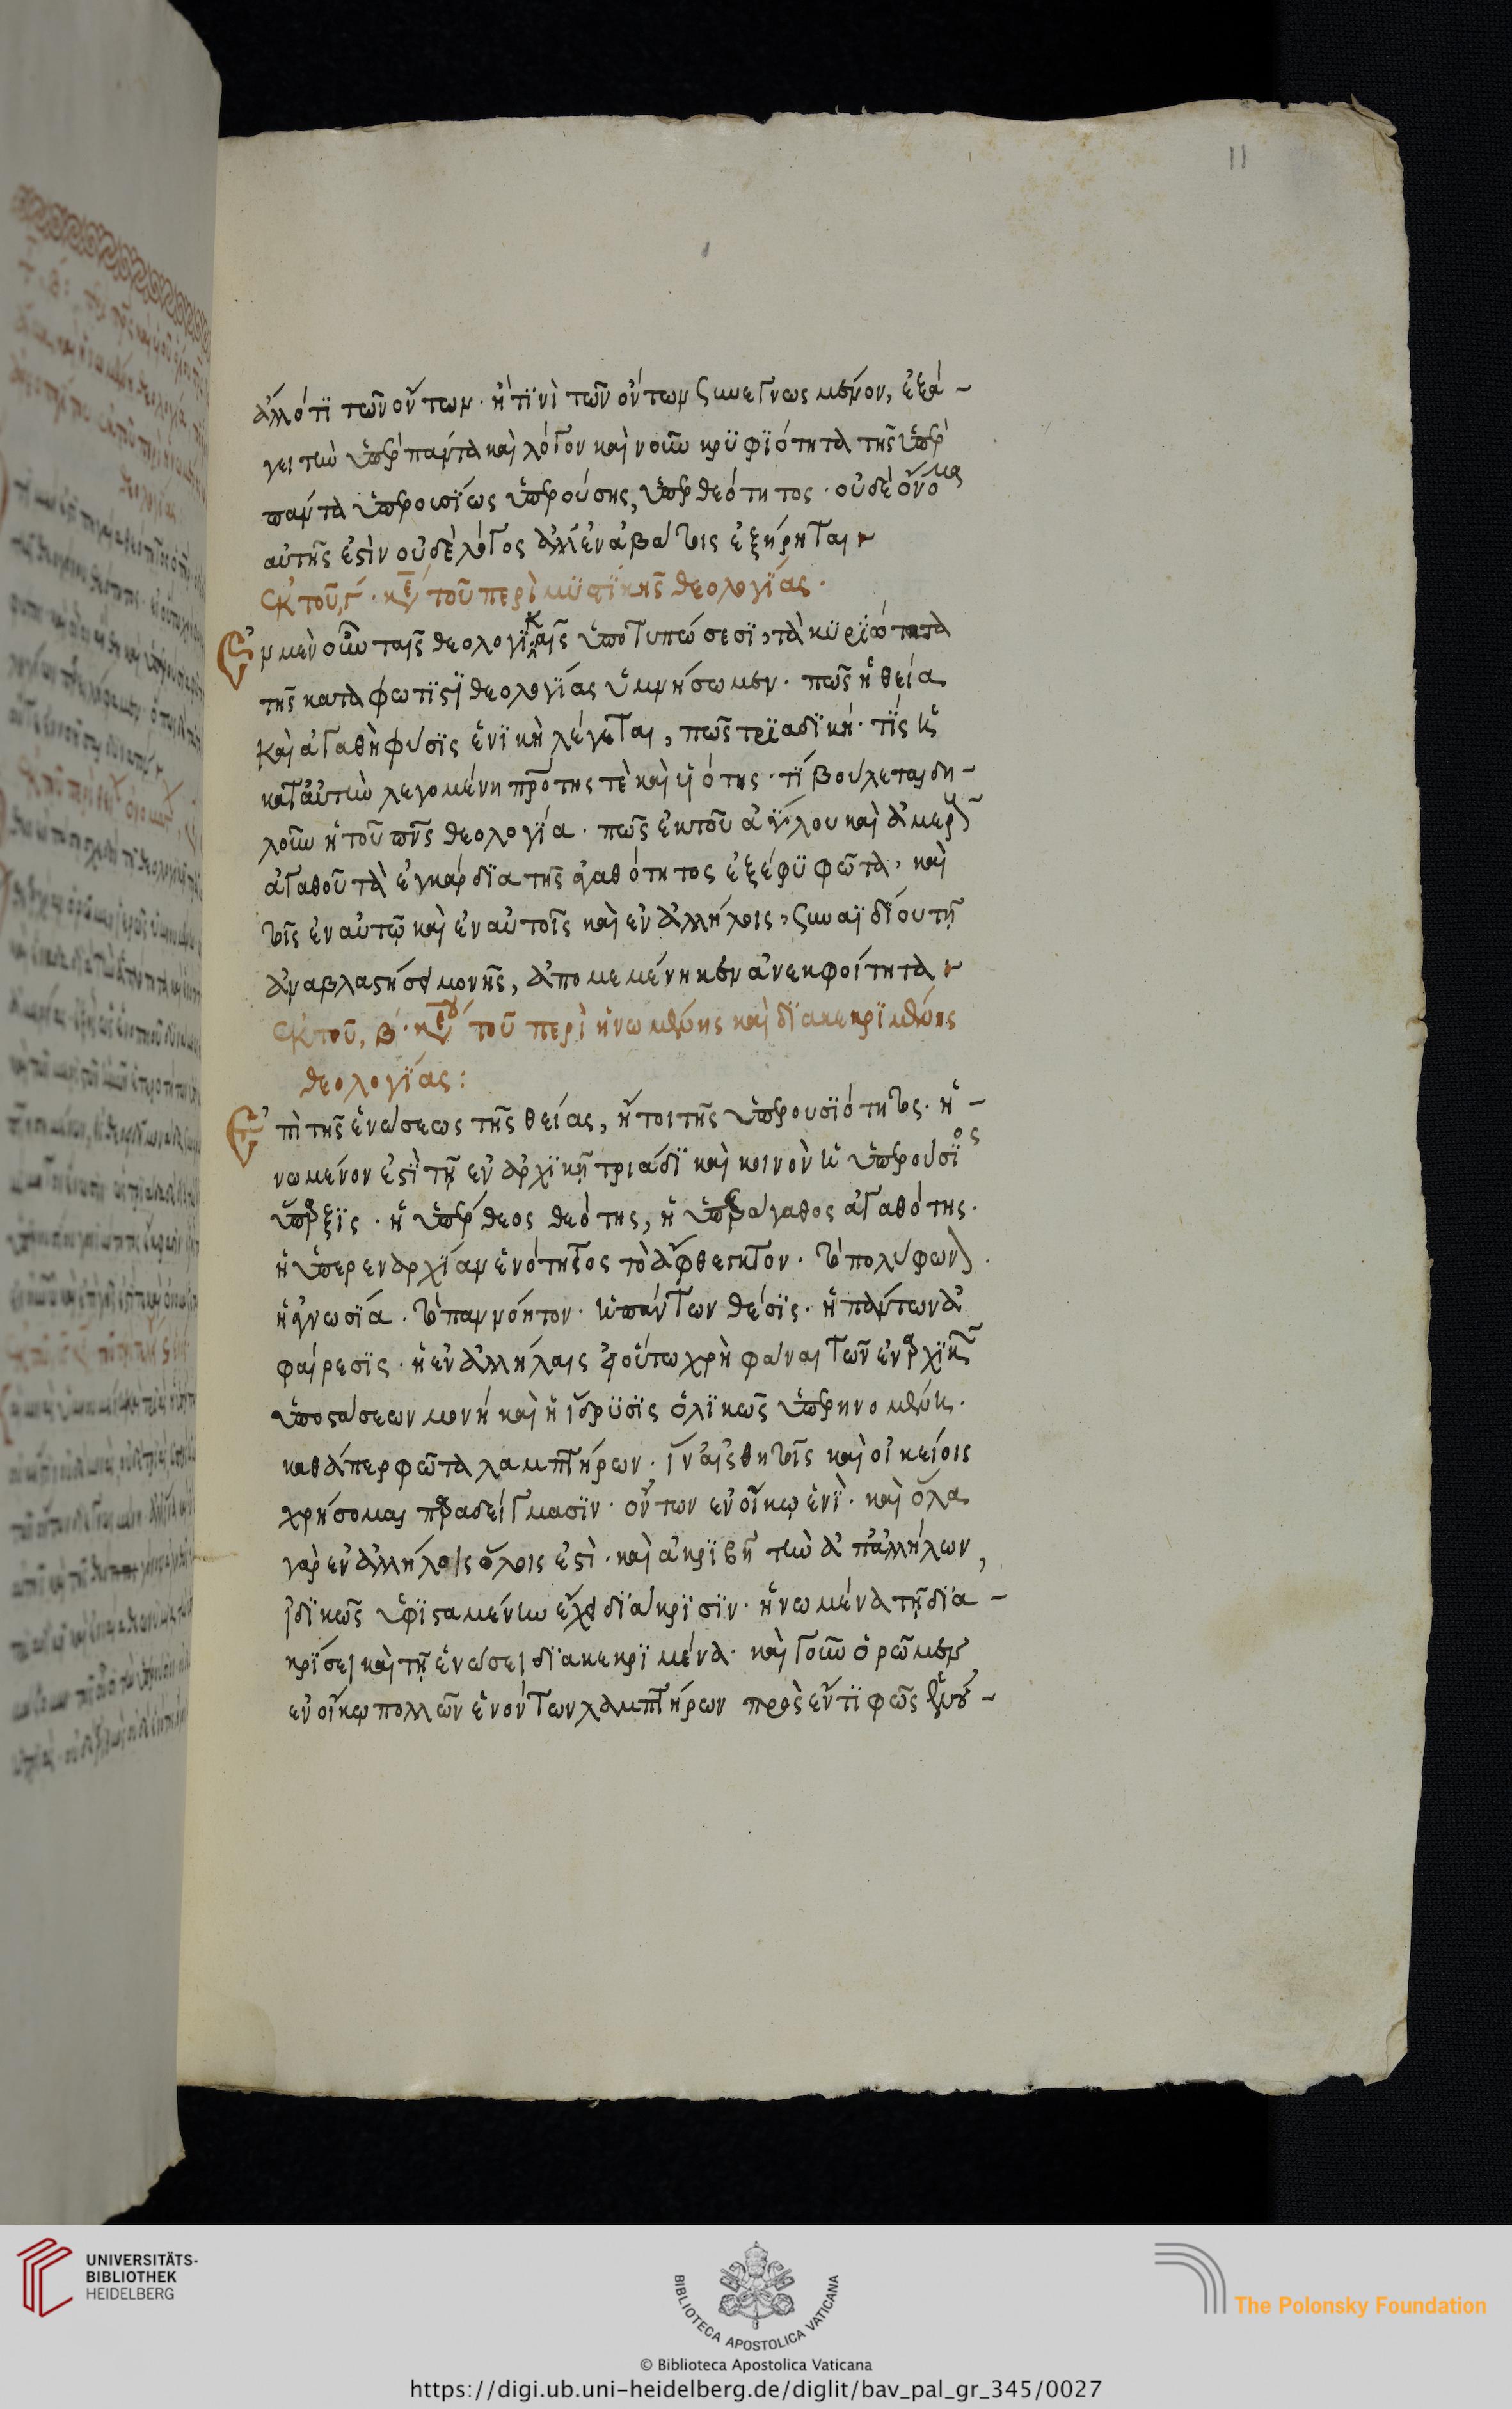 11
ἄλλό τι τῶν ὄντων· ἤ τινὶ τῶν ὄντων συνεγνωσμένον, ἐξά-
γει τὴν ὑπὲρ πάντα καὶ λόγον καὶ νοῦν κρυφιότητα τῆς ὑπὲρ
πάντα ὑπερουσίως ὑπερούσης, ὑπερθεότητος· οὐδὲ ὄνομα
αὐτῆς ἐστὶν οὐδὲ λόγος ἀλλ' ἐν ἀβάτοις ἐξήρηται
Ἐκ τοῦ, γ΄· κε΄ τοῦ περὶ μυστικῆς θεολογίας·
Ἐν μὲν οὖν ταῖς θεολογικαῖς ὑποτυπώσεσι, τὰ κυριώτατα
τῆς καταφωτισῒ θεολογίας ὑμνήσωμεν· πῶς ἡ θεία
καὶ ἀγαθὴ φύσις ἑνικὴ λέγεται, πῶς τριαδική· τίς ἡ
κατ' αὐτὴν λεγομένη πρότης τὲ καὶ υἱότης· τί βούλεται δη-
λοῦν ἡ τοῦ πνς θεολογία· πῶς ἐκ τοῦ ἀΰλου καὶ ἀμεροῦς
ἀγαθοῦ τὰ ἐγκάρδια τῆς ἀγαθότητος ἐξέφυ φῶτα, καὶ
τῆς ἐν αὐτῷ καὶ ἐν αὐτοῖς καὶ ἐν ἀλλήλοις, συναϊδίου τῇ
ἀναβλαστήσει μονῆς, ἀπομεμένηκεν ἀνεκφοίτητα
Ἐκ τοῦ, β΄· κε΄ τοῦ περὶ ἡνωμένης καὶ διακεκριμένης
θεολογίας:
Ἐπὶ τῆς ἑνώσεως τῆς θείας, ἤτοι τῆς ὑπερουσιότητος· ἡ-
νωμένον ἐστὶ τῇ ἐναρχικῇ τριάδι καὶ κοινὸν ἡ ὑπερούσιος
ὕπαρξις· ἡ ὑπέρθεος θεότης, ἡ ὑπεράγαθος ἀγαθότης·
ἡ ὑπὲρ ἐναρχίαν ἑνότητος τὸ ἄφθεγκτον· τὸ πολύφωνον·
ἡ ἀγνωσία· τὸ παννόητον· ἡ πάντων θέσις· ἡ πάντων ἀ
φαίρεσις· ἡ ἐν ἀλλήλαις εἰ οὕτω χρὴ φάναι τῶν ἐναρχικῶν
ὑποστάσεων μονή καὶ ἡ ἵδρυσις ὁλικῶς ὑπερηνομένη·
καθάπερ φῶτα λαμπτήρων· ἵν' αἰσθητοῖς καὶ οἰκείοις
χρήσομαι παραδείγμασιν· ὄντων ἐν οἴκῳ ἑνὶ· καὶ ὅλα
γὰρ ἐν ἀλλήλοις ὅλοις ἐστὶ· καὶ ἀκριβῆ τὴν ἀπ' ἀλλήλων,
ἰδικῶς ὑφισταμένην ἔχει διάκρισιν· ἡνωμένα τῇ δια-
κρίσει καὶ τῇ ἑνώσει διακεκριμένα· καὶ γοῦν ὁρῶμεν
ἐν οἴκῳ πολλῶν ἐνόντων λαμπτήρων πρὸς ἕν τι φῶς ἑνού-
UNIVERSITÄTS-
BIBLIOTHEK
HEIDELBERG
BIBLIOTECA APOSTOLICA VATICANA
The Polonsky Foundation
© Biblioteca Apostolica Vaticana
https://digi.ub.uni-heidelberg.de/diglit/bav_pal_gr_345/0027